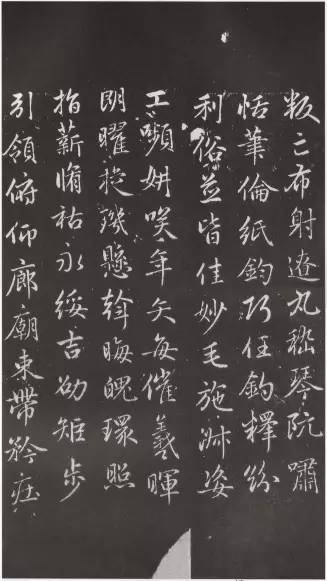 叛亡布射遼丸嵇琴阮嘯
恬筆倫紙鈞巧任釣釋紛
利俗並皆佳妙毛施淑姿
工嚬妍咲年矢每催羲暉
朗曜旋璣懸斡晦魄環照
指薪脩祜永綏吉劭矩步
引領俯仰廊廟束帶矜莊